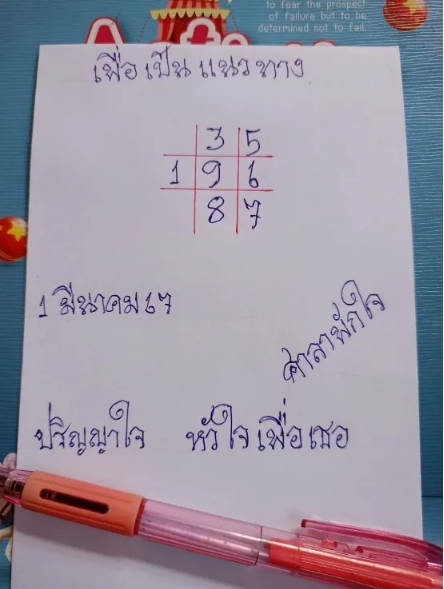 to fear the prospect
of failure but to be
determined not to fail
เพื่อเป็นแนวทาง
3 5
1 9 6
8 7
1 มีนาคม 67
ศาลาพักใจ
ปริญญาใจ หัวใจเพื่อเธอ